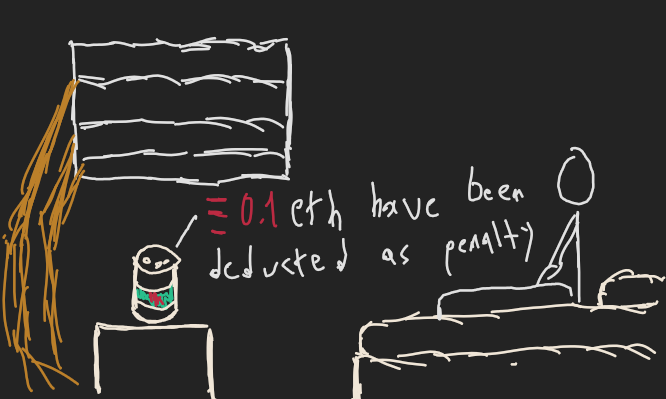 Ξ 0.1 eth have been
deducted as penalty